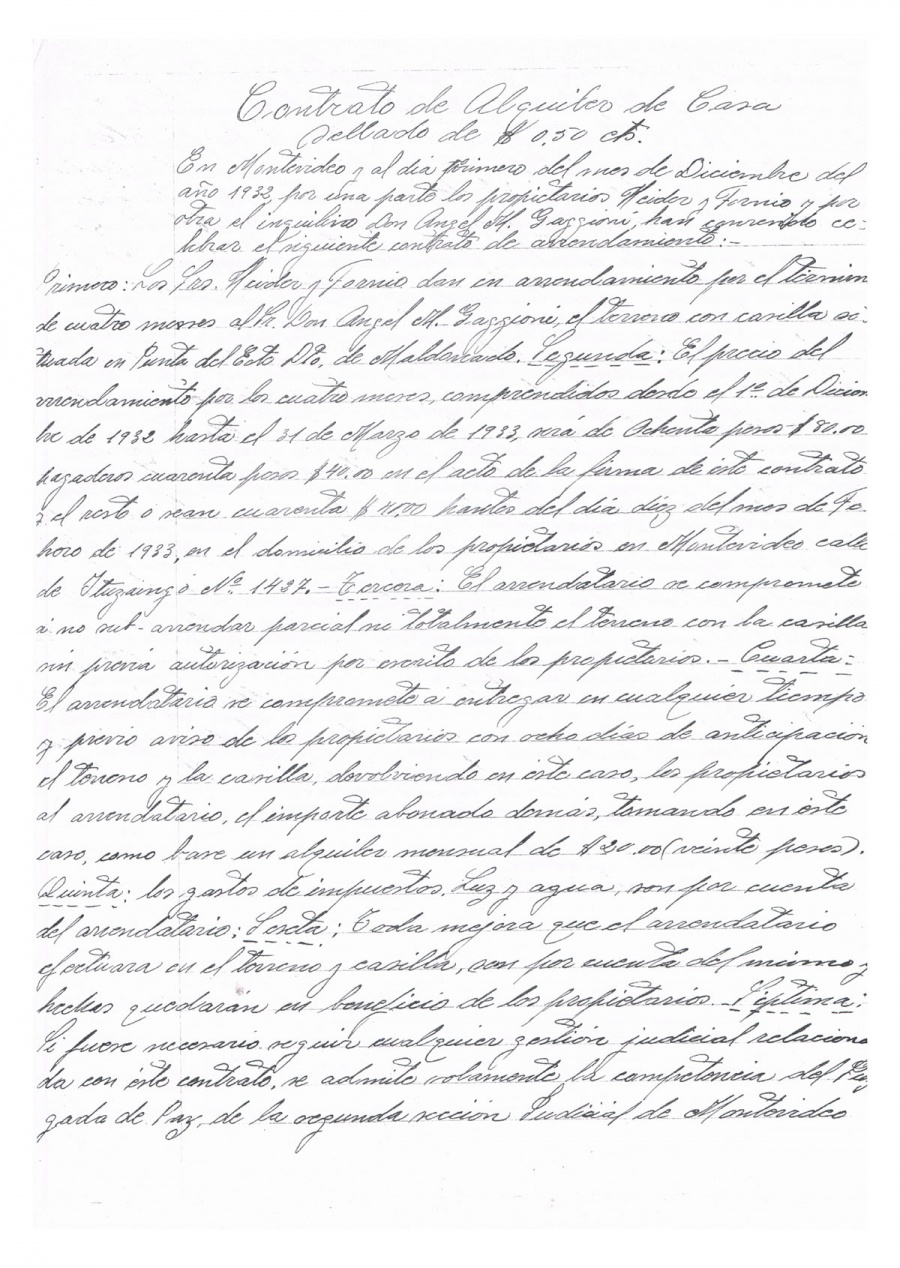 Contrato de Alquiler de Casa
Sellado de $ 0,50 cts.
En Montevideo y al dia primero del mes de Diciembre del
año 1932, por una parte los propietarios Meider y Fornio y por
otra el inquilino Don Angel M. Gaggioni, han convenido ce-
lebrar el siguiente contrato de arrendamiento:-
Primero: Los Srs. Meider y Fornio dan en arrendamiento por el termin
de cuatro meses al Sr. Don Angel M. Gaggioni, el terreno con casilla si-
tuada en Punta del Este Dto. de Maldonado. Segunda: El precio del
arrendamiento por los cuatro meses, comprendidos desde el 1º de Diciem
bre de 1932 hasta el 31 de Marzo de 1933, será de Ochenta pesos $ 80.00
pagaderos cuarenta pesos $ 40.00 en el acto de la firma de este contrato
y el resto o sean cuarenta $ 40.00 hantes del día diez del mes de Fe
brero de 1933, en el domicilio de los propietarios en Montevideo calle
de Ituzaingó Nº 1437.- Tercera: El arrendatario se compromete
á no sub-arrendar parcial ni totalmente el terreno con la casilla
sin previa autorización por escrito de los propietarios.- Cuarta:
El arrendatario se compromete á entregar en cualquier tiempo
y previo aviso de los propietarios con ocho dias de anticipación
el terreno y la casilla, devolviendo en éste caso, los propietarios
al arrendatario, el importe abonado demás, tomando en éste
caso, como base un alquiler mensual de $ 20.00 (veinte pesos).
Quinta: los gastos de impuestos. Luz y agua, son por cuenta
del arrendatario: Sexta: Toda mejora que el arrendatario
efectuara en el terreno y casilla, son por cuenta del mismo y
hechas quedarán en beneficio de los propietarios.- Séptima:
Si fuese necesario seguir cualquier gestión judicial relaciona
da con éste contrato, se admite solamente la competencia del Juz
gada de Paz, de la segunda sección Judicial de Montevideo